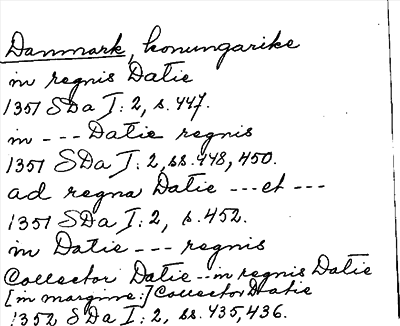 Danmark, konungarike
in regnis Datie
1351 SDa I: 2, s. 447.
in --- Datie regnis
1351 SDa I: 2, ss. 448, 450.
ad regna Datie --- et ---
1351 SDa I: 2, s. 452.
in Datie --- regnis
Collector Datie -- in regnis Datie
[in margine:] Collector Datie
1352 SDa I: 2, ss. 435, 436.